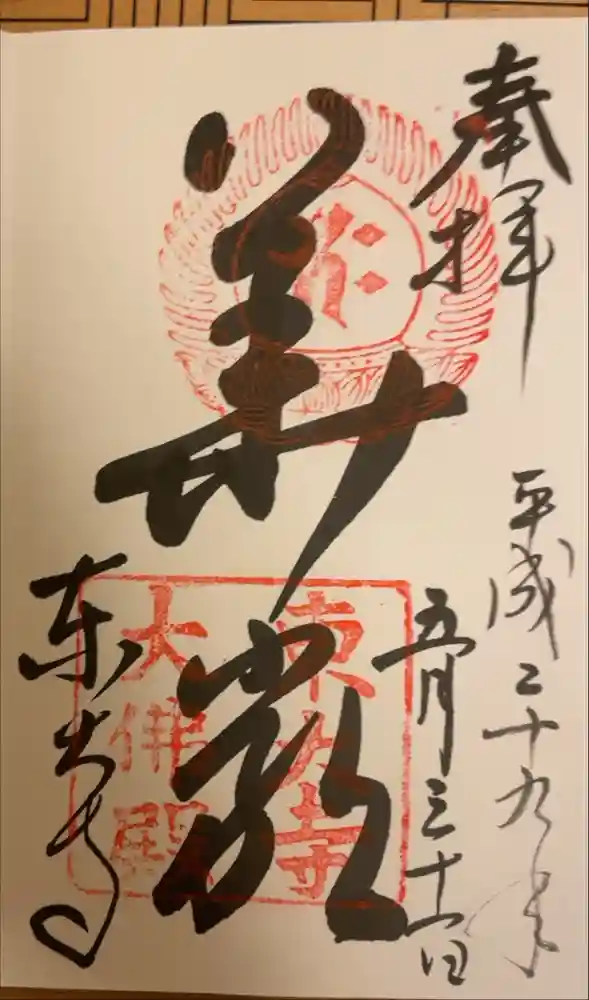 奉拝
平成二十九年
五月三十一日
華厳
東大寺
東大寺
大佛殿